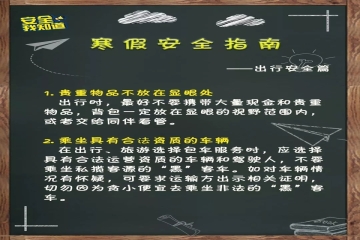 安全
我知道
寒假安全指南
——出行安全篇
1. 贵重物品不放在显眼处
出行时，最好不要携带大量现金和贵重
物品，背包一定放在显眼的视野范围内，
或者交给同伴看管。
2. 乘坐具有合法资质的车辆
在出行、旅游选择包车服务时，应选择
具有合法运营资质的车辆和驾驶人，不要
乘坐私揽客源的“黑”客车。如对车辆情
况有怀疑，可要求运输方出示相关证明，
切勿因为贪小便宜去乘坐非法的“黑”客
车。